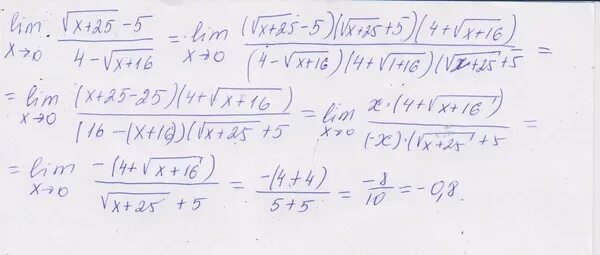 lim x→0 (√(x+25) -5)/(4-√(x+16)) = lim x→0 ((√(x+25) -5)(√(x+25) +5)(4+√(x+16)))/((4-√(x+16))(4+√(1+16))(√(x+25) +5) =
= lim x→0 ((x+25-25)(4+√(x+16)))/((16-(x+16))(√(x+25) +5) = lim x→0 (x·(4+√(x+16)))/((-x)·(√(x+25) +5) =
= lim x→0 (-(4+√(x+16)))/(√(x+25) +5) = (-(4+4))/(5+5) = -8/10 = -0,8.